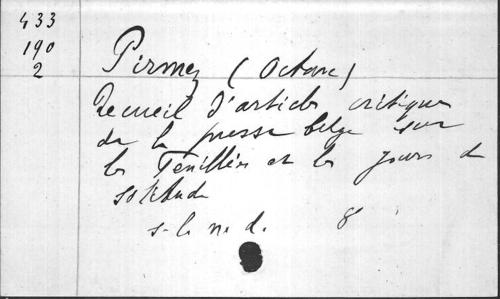 433
190
2
Pirmez (Octave)
Recueil d'articles critiques
de la presse belge sur
les Feuillées et les jours de
solitude
s.l. n. d. 8°